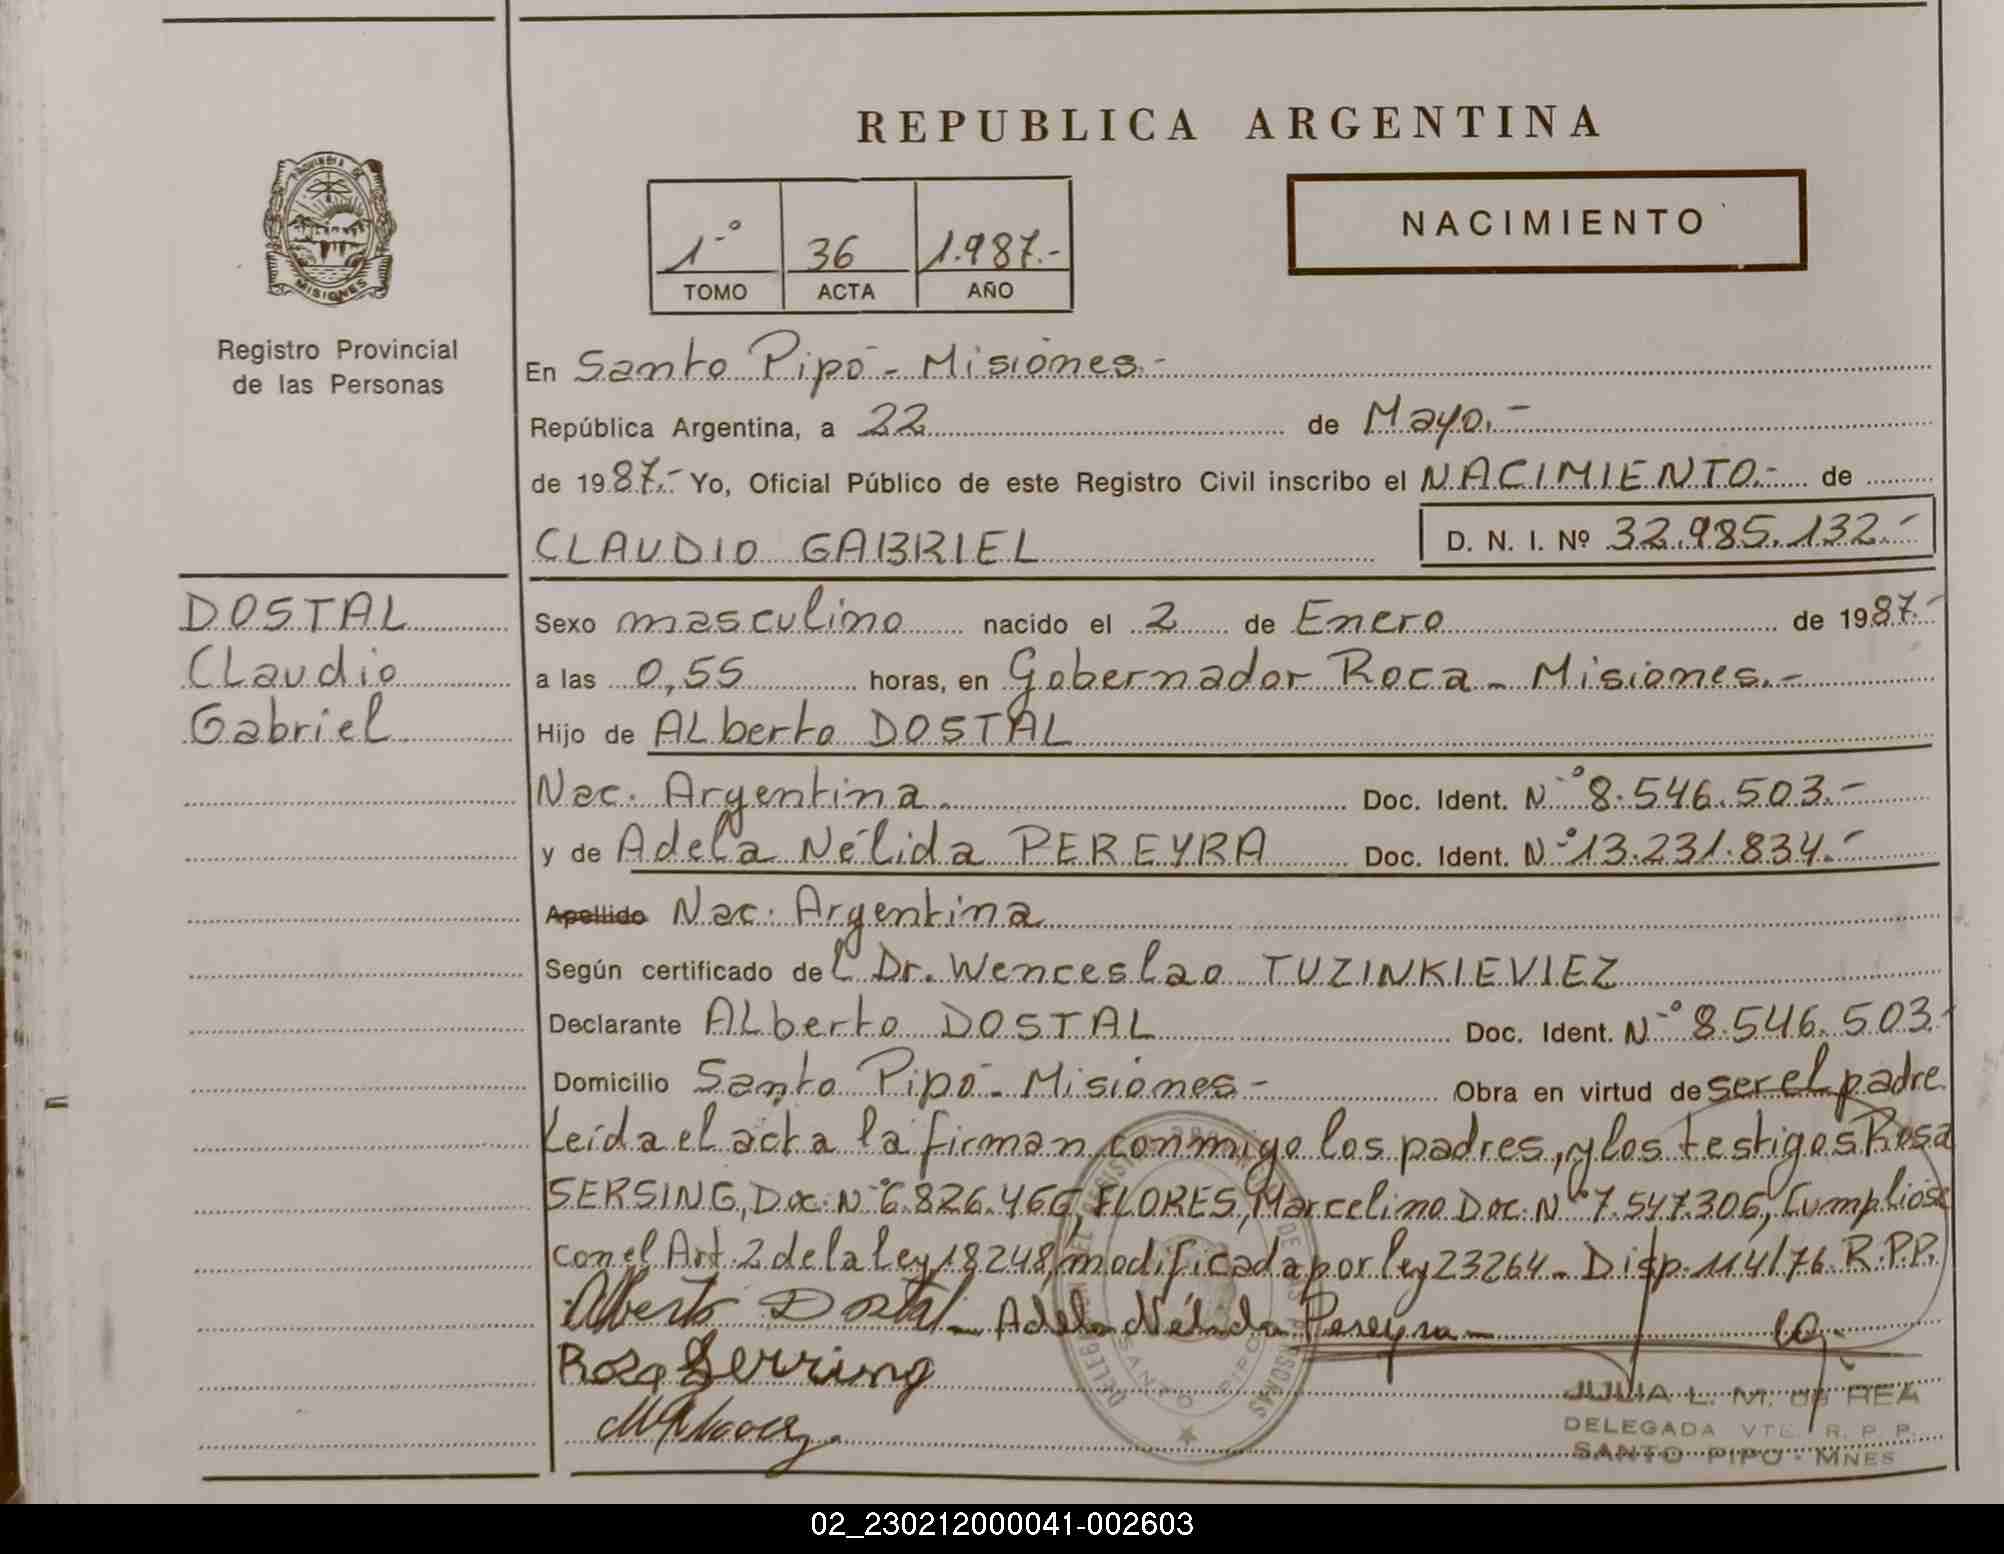 REPUBLICA ARGENTINA
PROVINCIA DE
MISIONES
Registro Provincial
de las Personas
1º 36 1.987.-
TOMO ACTA AÑO
NACIMIENTO
En Santo Pipó - Misiones.-
República Argentina, a 22 de Mayo.-
de 1987.- Yo, Oficial Público de este Registro Civil inscribo el NACIMIENTO.- de
CLAUDIO GABRIEL D. N. I. Nº 32.985.132.-
DOSTAL
Claudio
Gabriel
Sexo masculino nacido el 2 de Enero de 1987.-
a las 0,55 horas, en Gobernador Roca - Misiones.-
Hijo de ALberto DOSTAL
Nac. Argentina. Doc. Ident. Nº 8.546.503.-
y de Adela Nélida PEREYRA Doc. Ident. Nº 13.231.834.-
Apellido Nac. Argentina
Según certificado del Dr. Wenceslao TUZINKIEVIEZ
Declarante ALberto DOSTAL Doc. Ident. Nº 8.546.503.-
Domicilio Santo Pipó - Misiones - Obra en virtud de ser el padre
Leída el acta la firman conmigo los padres, y los testigos Rosa
SERSING, Doc. Nº 6.826.466, FLORES, Marcelino Doc. Nº 7.547.306, Cumpliose
con el Art. 2 de la ley 18248, modificada por ley 23264 - Disp. 114/76 R.P.P.
Alberto Dostal - Adela Nélida Pereyra -
Rosa Serring
SANTO PIPO
JULIA L. M. de REA
DELEGADA VTE. R. P. P.
SANTO PIPO - MNES
02_230212000041-002603